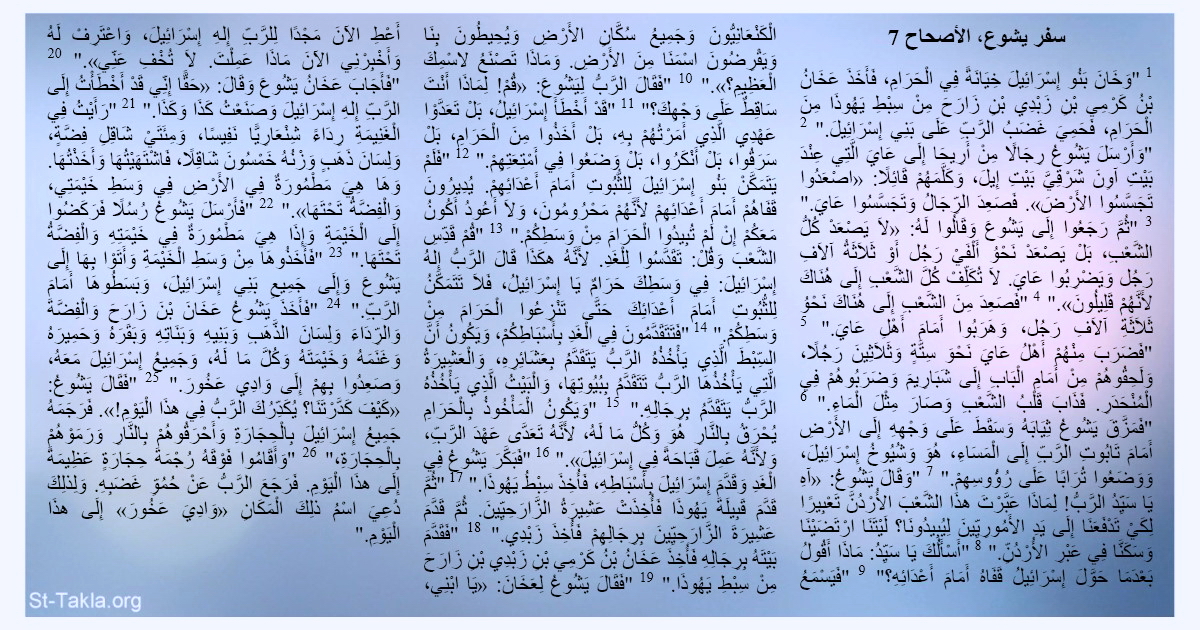 سفر يشوع، الأصحاح 7
1 "وَخَانَ بَنُو إِسْرَائِيلَ خِيَانَةً فِي الْحَرَامِ، فَأَخَذَ عَخَانُ
بْنُ كَرْمِي بْنِ زَبْدِي بْنِ زَارَحَ مِنْ سِبْطِ يَهُوذَا مِنَ
الْحَرَامِ، فَحَمِيَ غَضَبُ الرَّبِّ عَلَى بَنِي إِسْرَائِيلَ." 2
"وَأَرْسَلَ يَشُوعُ رِجَالًا مِنْ أَرِيحَا إِلَى عَايَ الَّتِي عِنْدَ
بَيْتِ آوِنَ شَرْقِيَّ بَيْتِ إِيلَ، وَكَلَّمَهُمْ قَائِلًا: «اصْعَدُوا
تَجَسَّسُوا الأَرْضَ». فَصَعِدَ الرِّجَالُ وَتَجَسَّسُوا عَايَ."
3 "ثُمَّ رَجَعُوا إِلَى يَشُوعَ وَقَالُوا لَهُ: «لاَ يَصْعَدْ كُلُّ
الشَّعْبِ، بَلْ يَصْعَدْ نَحْوُ أَلْفَيْ رَجُل أَوْ ثَلاَثَةُ آلاَفِ
رَجُل وَيَضْرِبُوا عَايَ. لاَ تُكَلِّفْ كُلَّ الشَّعْبِ إِلَى هُنَاكَ
لأَنَّهُمْ قَلِيلُونَ»." 4 "فَصَعِدَ مِنَ الشَّعْبِ إِلَى هُنَاكَ نَحْوُ
ثَلاَثَةِ آلاَفِ رَجُل، وَهَرَبُوا أَمَامَ أَهْلِ عَايَ." 5
"فَضَرَبَ مِنْهُمْ أَهْلُ عَايَ نَحْوَ سِتَّةٍ وَثَلاَثِينَ رَجُلًا،
وَلَحِقُوهُمْ مِنْ أَمَامِ الْبَابِ إِلَى شَبَارِيمَ وَضَرَبُوهُمْ فِي
الْمُنْحَدَرِ. فَذَابَ قَلْبُ الشَّعْبِ وَصَارَ مِثْلَ الْمَاءِ." 6
"فَمَزَّقَ يَشُوعُ ثِيَابَهُ وَسَقَطَ عَلَى وَجْهِهِ إِلَى الأَرْضِ
أَمَامَ تَابُوتِ الرَّبِّ إِلَى الْمَسَاءِ، هُوَ وَشُيُوخُ إِسْرَائِيلَ،
وَوَضَعُوا تُرَابًا عَلَى رُؤُوسِهِمْ." 7 "وَقَالَ يَشُوعُ: «آهِ
يَا سَيِّدُ الرَّبُّ! لِمَاذَا عَبَّرْتَ هذَا الشَّعْبَ الأُرْدُنَّ تَعْبِيرًا
لِكَيْ تَدْفَعَنَا إِلَى يَدِ الأَمُورِيِّينَ لِيُبِيدُونَا؟ لَيْتَنَا ارْتَضَيْنَا
وَسَكَنَّا فِي عَبْرِ الأُرْدُنِّ." 8 "أَسْأَلُكَ يَا سَيِّدُ: مَاذَا أَقُولُ
بَعْدَمَا حَوَّلَ إِسْرَائِيلُ قَفَاهُ أَمَامَ أَعْدَائِهِ؟" 9 "فَيَسْمَعُ
الْكَنْعَانِيُّونَ وَجَمِيعُ سُكَّانِ الأَرْضِ وَيُحِيطُونَ بِنَا
وَيَقْرِضُونَ اسْمَنَا مِنَ الأَرْضِ. وَمَاذَا تَصْنَعُ لاسْمِكَ
الْعَظِيمِ؟»." 10 "فَقَالَ الرَّبُّ لِيَشُوعَ: «قُمْ! لِمَاذَا أَنْتَ
سَاقِطٌ عَلَى وَجْهِكَ؟" 11 "قَدْ أَخْطَأَ إِسْرَائِيلُ، بَلْ تَعَدَّوْا
عَهْدِي الَّذِي أَمَرْتُهُمْ بِهِ، بَلْ أَخَذُوا مِنَ الْحَرَامِ، بَلْ
سَرَقُوا، بَلْ أَنْكَرُوا، بَلْ وَضَعُوا فِي أَمْتِعَتِهِمْ." 12 "فَلَمْ
يَتَمَكَّنْ بَنُو إِسْرَائِيلَ لِلثُّبُوتِ أَمَامَ أَعْدَائِهِمْ. يُدِيرُونَ
قَفَاهُمْ أَمَامَ أَعْدَائِهِمْ لأَنَّهُمْ مَحْرُومُونَ، وَلاَ أَعُودُ أَكُونُ
مَعَكُمْ إِنْ لَمْ تُبِيدُوا الْحَرَامَ مِنْ وَسَطِكُمْ." 13 "قُمْ قَدِّسِ
الشَّعْبَ وَقُلْ: تَقَدَّسُوا لِلْغَدِ. لأَنَّهُ هكَذَا قَالَ الرَّبُّ إِلهُ
إِسْرَائِيلَ: فِي وَسَطِكَ حَرَامٌ يَا إِسْرَائِيلُ، فَلاَ تَتَمَكَّنُ
لِلثُّبُوتِ أَمَامَ أَعْدَائِكَ حَتَّى تَنْزِعُوا الْحَرَامَ مِنْ
وَسَطِكُمْ." 14 "فَتَتَقَدَّمُونَ فِي الْغَدِ بِأَسْبَاطِكُمْ، وَيَكُونُ أَنَّ
السِّبْطَ الَّذِي يَأْخُذُهُ الرَّبُّ يَتَقَدَّمُ بِعَشَائِرِهِ، وَالْعَشِيرَةُ
الَّتِي يَأْخُذُهَا الرَّبُّ تَتَقَدَّمُ بِبُيُوتِهَا، وَالْبَيْتُ الَّذِي يَأْخُذُهُ
الرَّبُّ يَتَقَدَّمُ بِرِجَالِهِ." 15 "وَيَكُونُ الْمَأْخُوذُ بِالْحَرَامِ
يُحْرَقُ بِالنَّارِ هُوَ وَكُلُّ مَا لَهُ، لأَنَّهُ تَعَدَّى عَهْدَ الرَّبِّ،
وَلأَنَّهُ عَمِلَ قَبَاحَةً فِي إِسْرَائِيلَ»." 16 "فَبَكَّرَ يَشُوعُ فِي
الْغَدِ وَقَدَّمَ إِسْرَائِيلَ بِأَسْبَاطِهِ، فَأُخِذَ سِبْطُ يَهُوذَا." 17 "ثُمَّ
قَدَّمَ قَبِيلَةَ يَهُوذَا فَأُخِذَتْ عَشِيرَةُ الزَّارَحِيِّينَ. ثُمَّ قَدَّمَ
عَشِيرَةَ الزَّارَحِيِّينَ بِرِجَالِهِمْ فَأُخِذَ زَبْدِي." 18 "فَقَدَّمَ
بَيْتَهُ بِرِجَالِهِ فَأُخِذَ عَخَانُ بْنُ كَرْمِي بْنِ زَبْدِي بْنِ زَارَحَ
مِنْ سِبْطِ يَهُوذَا." 19 "فَقَالَ يَشُوعُ لِعَخَانَ: «يَا ابْنِي،
أَعْطِ الآنَ مَجْدًا لِلرَّبِّ إِلهِ إِسْرَائِيلَ، وَاعْتَرِفْ لَهُ
وَأَخْبِرْنِي الآنَ مَاذَا عَمِلْتَ. لاَ تُخْفِ عَنِّي»." 20
"فَأَجَابَ عَخَانُ يَشُوعَ وَقَالَ: «حَقًّا إِنِّي قَدْ أَخْطَأْتُ إِلَى
الرَّبِّ إِلهِ إِسْرَائِيلَ وَصَنَعْتُ كَذَا وَكَذَا." 21 "رَأَيْتُ فِي
الْغَنِيمَةِ رِدَاءً شِنْعَارِيًّا نَفِيسًا، وَمِئَتَيْ شَاقِلِ فِضَّةٍ،
وَلِسَانَ ذَهَبٍ وَزْنُهُ خَمْسُونَ شَاقِلًا، فَاشْتَهَيْتُهَا وَأَخَذْتُهَا.
وَهَا هِيَ مَطْمُورَةٌ فِي الأَرْضِ فِي وَسَطِ خَيْمَتِي،
وَالْفِضَّةُ تَحْتَهَا»." 22 "فَأَرْسَلَ يَشُوعُ رُسُلًا فَرَكَضُوا
إِلَى الْخَيْمَةِ وَإِذَا هِيَ مَطْمُورَةٌ فِي خَيْمَتِهِ وَالْفِضَّةُ
تَحْتَهَا." 23 "فَأَخَذُوهَا مِنْ وَسَطِ الْخَيْمَةِ وَأَتَوْا بِهَا إِلَى
يَشُوعَ وَإِلَى جَمِيعِ بَنِي إِسْرَائِيلَ، وَبَسَطُوهَا أَمَامَ
الرَّبِّ." 24 "فَأَخَذَ يَشُوعُ عَخَانَ بْنَ زَارَحَ وَالْفِضَّةَ
وَالرِّدَاءَ وَلِسَانَ الذَّهَبِ وَبَنِيهِ وَبَنَاتِهِ وَبَقَرَهُ وَحَمِيرَهُ
وَغَنَمَهُ وَخَيْمَتَهُ وَكُلَّ مَا لَهُ، وَجَمِيعُ إِسْرَائِيلَ مَعَهُ،
وَصَعِدُوا بِهِمْ إِلَى وَادِي عَخُورَ." 25 "فَقَالَ يَشُوعُ:
«كَيْفَ كَدَّرْتَنَا؟ يُكَدِّرُكَ الرَّبُّ فِي هذَا الْيَوْمِ!». فَرَجَمَهُ
جَمِيعُ إِسْرَائِيلَ بِالْحِجَارَةِ وَأَحْرَقُوهُمْ بِالنَّارِ وَرَمَوْهُمْ
بِالْحِجَارَةِ،" 26 "وَأَقَامُوا فَوْقَهُ رُجْمَةَ حِجَارَةٍ عَظِيمَةً
إِلَى هذَا الْيَوْمِ. فَرَجَعَ الرَّبُّ عَنْ حُمُوِّ غَضَبِهِ. وَلِذلِكَ
دُعِيَ اسْمُ ذلِكَ الْمَكَانِ «وَادِيَ عَخُورَ» إِلَى هذَا
الْيَوْمِ."
St-Takla.org